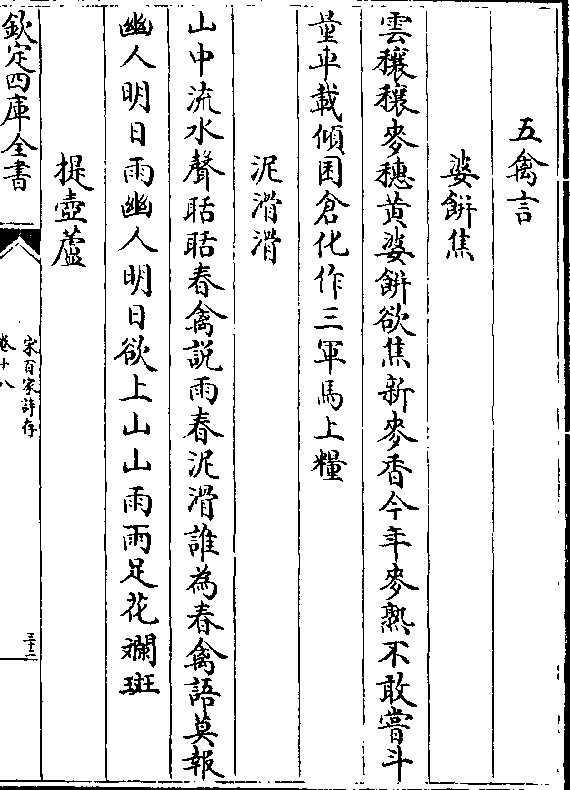 五禽言
婆餅焦
雲穰穰麥穗黃婆餅欲焦新麥香今年麥熟不敢嘗斗
量車載傾囷倉化作三軍馬上糧
泥滑滑
山中流水聲聒聒春禽説雨春泥滑誰為春禽語莫報
幽人明日雨幽人明日欲上山山雨雨足花斕斑
提壺蘆
欽定四庫全書
宋百家詩存
卷十八
三十二